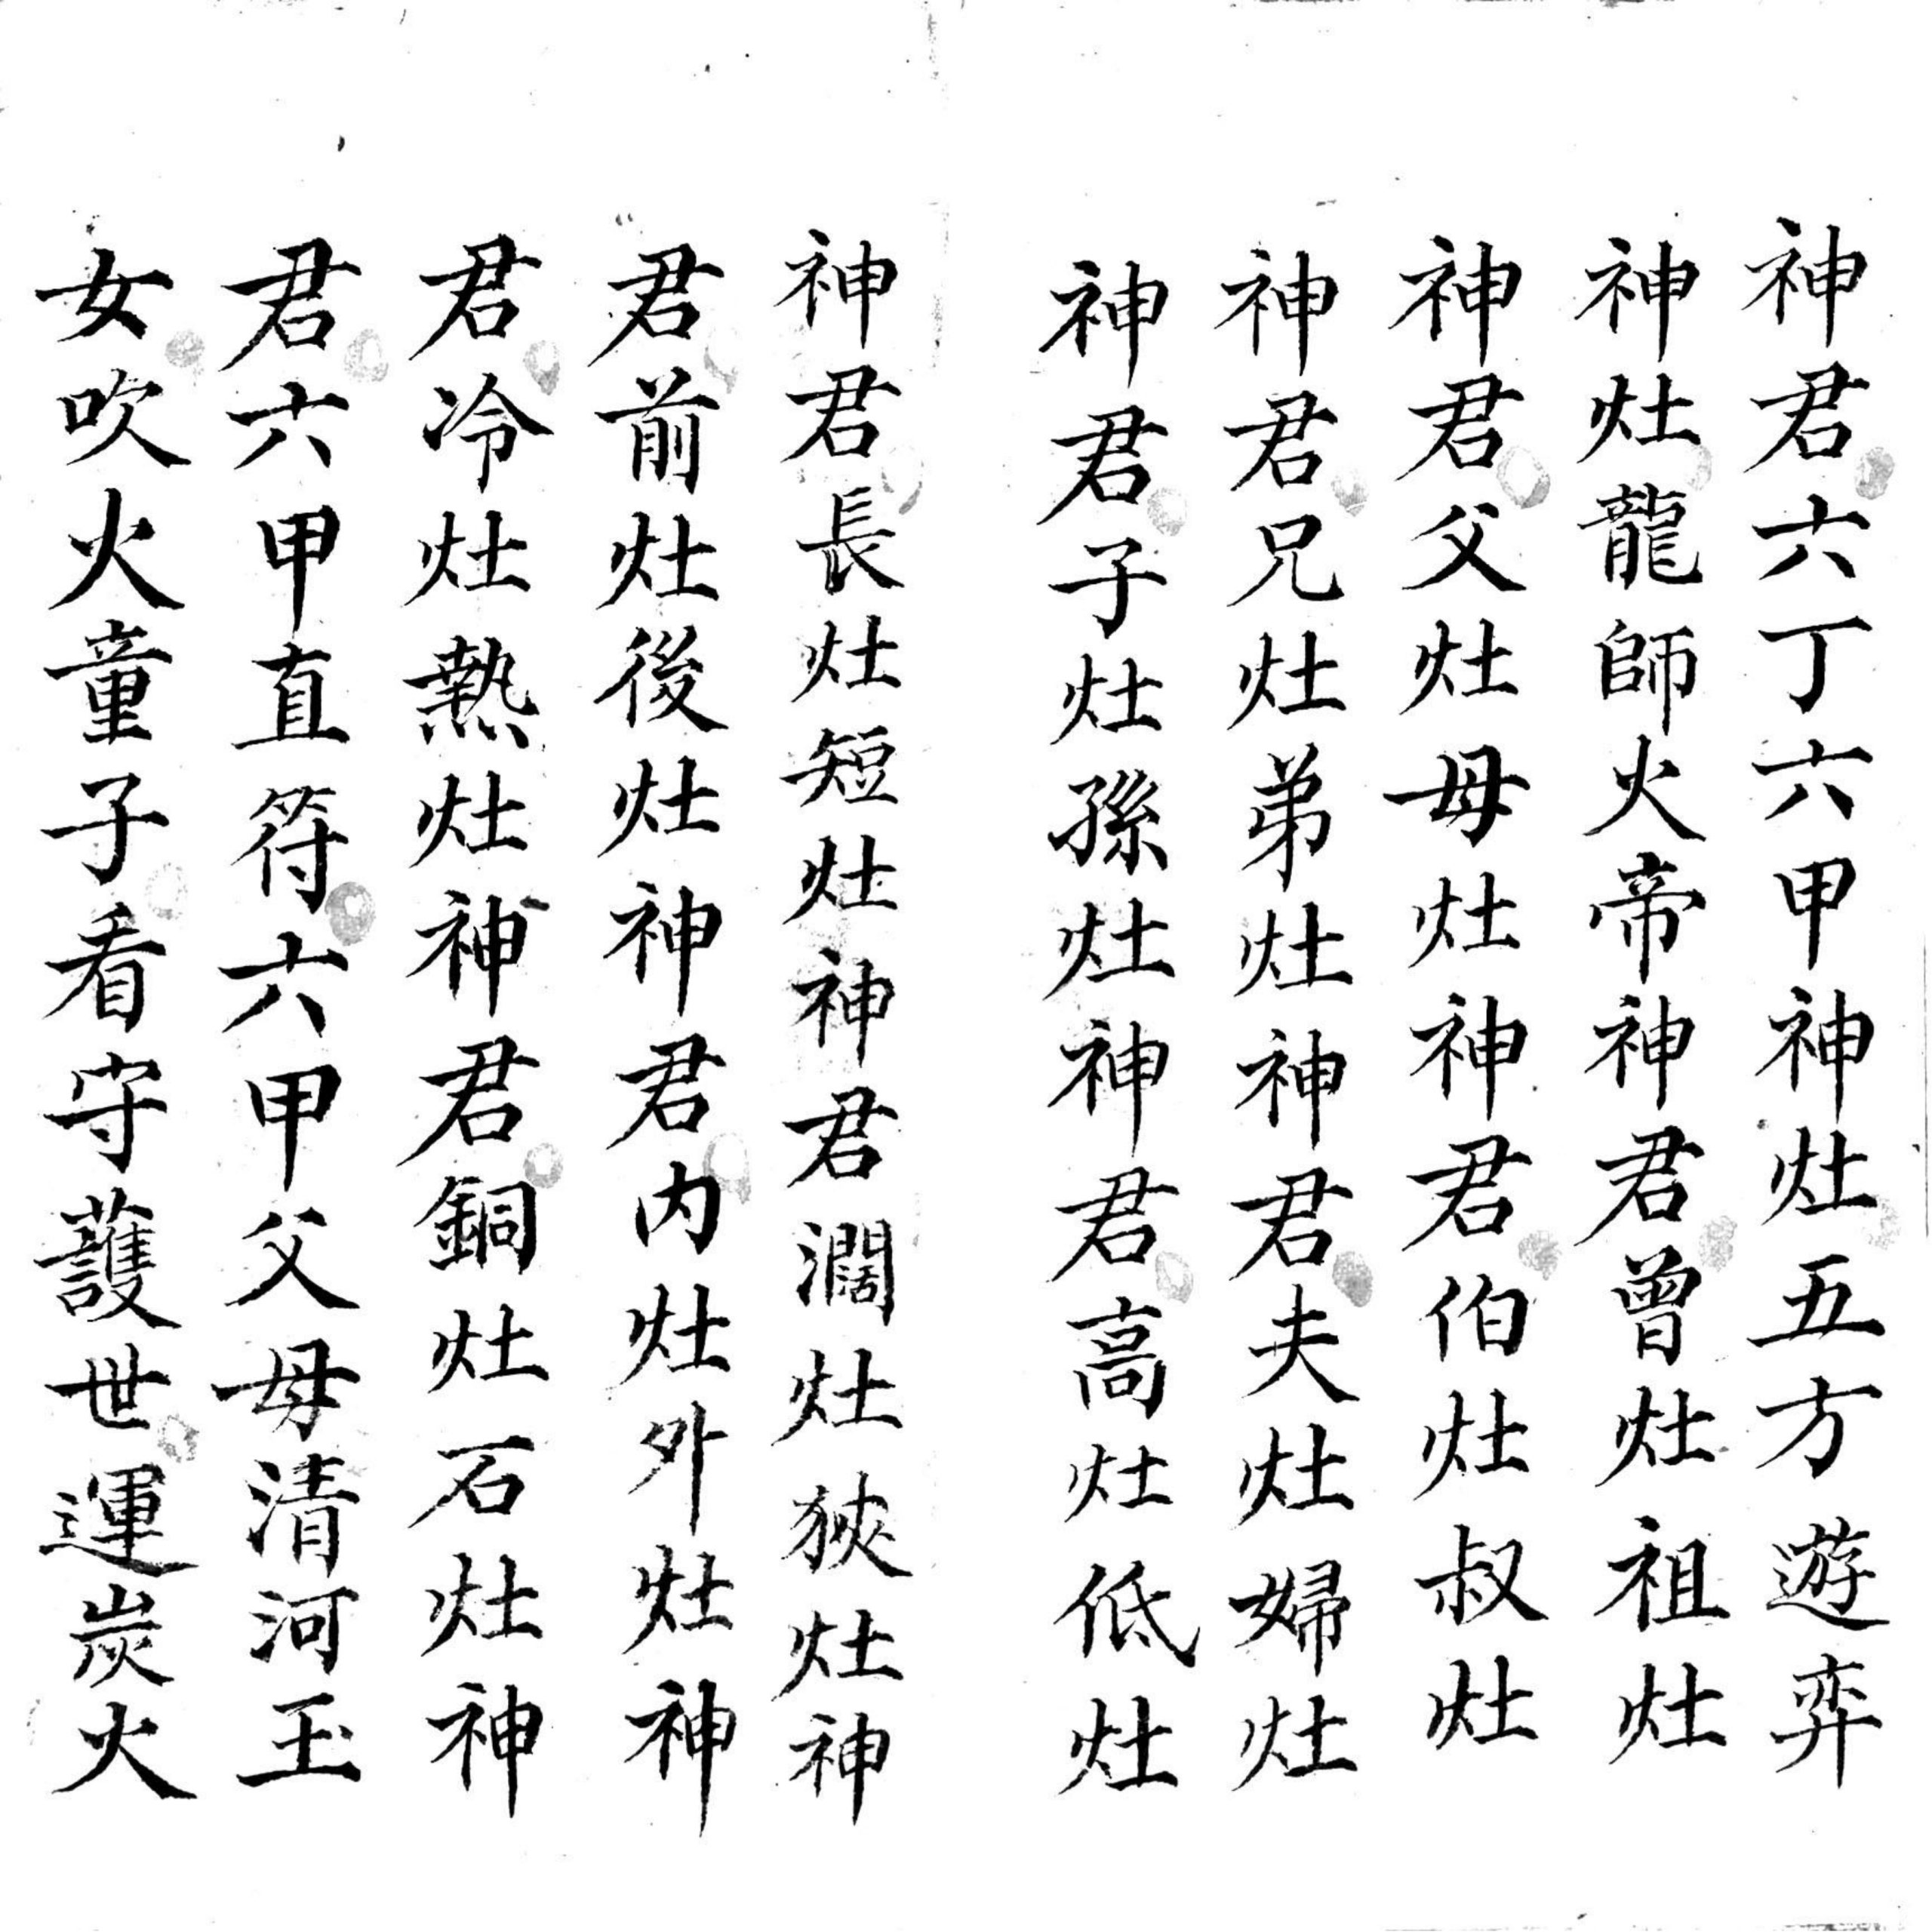 神君六丁六甲神灶五方遊弈
神灶龍師火帝神君曾灶祖灶
神君父灶母灶神君伯灶叔灶
神君兄灶弟灶神君夫灶婦灶
神君子灶孫灶神君高灶低灶
神君長灶短灶神君濶灶狹灶神
君前灶後灶神君内灶外灶神
君冷灶熱灶神君銅灶石灶神
君六甲直符六甲父母清河玉
女吹火童子看守護世運炭火